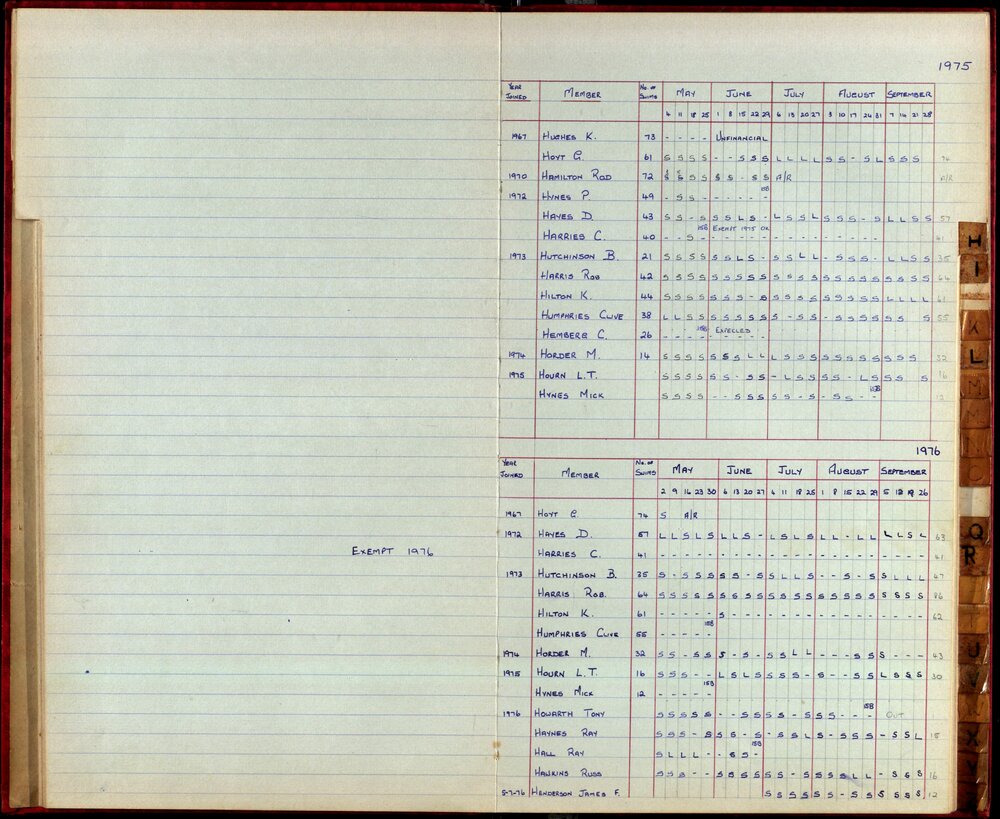 1975
YEAR JOINED MEMBER No. OF SWIMS MAY JUNE JULY AUGUST SEPTEMBER
4 11 18 25 1 8 15 22 29 6 13 20 27 3 10 17 24 31 7 14 21 28
1967 HUGHES K. 73 - - - - UNFINANCIAL
HOYT G. 61 S S S S - - S S S L L L L S S - S L S S S 74
1970 HAMILTON ROD 72 S S S S S S - S S A/R A/R
15B
1972 HYNES P. 49 - S S - - - - - -
HAYES D. 43 S S - S S S L S - L S S L S S S - S L L S S 57
15B EXEMPT 1975 OK
HARRIES C. 40 - - S - - - - - - - - - - - - - - 41
1973 HUTCHINSON B. 21 S S S S S S L S - S S L L - S S S - L L S S 35
HARRIS ROB 42 S S S S S S S S S S S S S S S S S S S S S S 64
HILTON K. 44 S S S S S S S - S S S S S S S S S S L L L L 61
HUMPHRIES CLIVE 38 L L S S S S S S S S - S S - S S S S S S S 55
15B EXPELLED
HEMBERG C. 26 - - - - - - - - -
1974 HORDER M. 14 S S S S S S S L L L S S S S S S S S S S S 32
1975 HOURN L.T. S S S S S S - S S - L S S S S - L S S S S 16
15B
HYNES MICK S S S S - - S S S S S - S - S S - - 12
1976
YEAR JOINED MEMBER No. OF SWIMS MAY JUNE JULY AUGUST SEPTEMBER
2 9 16 23 30 6 13 20 27 4 11 18 25 1 8 15 22 29 5 12 19 26
1967 HOYT G. 74 S A/R
1972 HAYES D. 57 L L S L S L L S - L S L S L L - L L L L S L 63
EXEMPT 1976 HARRIES C. 41 - - - - - - - - - - - - - - - - - - - - - - 41
1973 HUTCHINSON B. 35 S - S S S S S - S S L L S - - S - S S L L L 47
HARRIS ROB. 64 S S S S S S S S S S S S S S S S S S S S S S 86
HILTON K. 61 - - - - - S - - - - - - - - - - - - - - - - 62
15B
HUMPHRIES CLIVE 55 - - - - -
1974 HORDER M. 32 S S - S S S - S - S S L L - - - S S S - - - 43
1975 HOURN L.T. 16 S S S - - L S L S S S S - S - - S S L S S S 30
15B
HYNES MICK 12 - - - - -
15B
1976 HOWARTH TONY S S S S S - - S S S S - S S S - - - OUT
HAYNES RAY S S S - S S S - S - S S L S - S S S - S S L 15
15B
HALL RAY S L L L - - S S -
HAWKINS RUSS S S S - - S S S S S S - S S S S L L - S S S 16
5-7-76 HENDERSON JAMES F. S S S S S S - S S S S S S 12
H
I
K
L
M
Q
R
U
V
X
Y